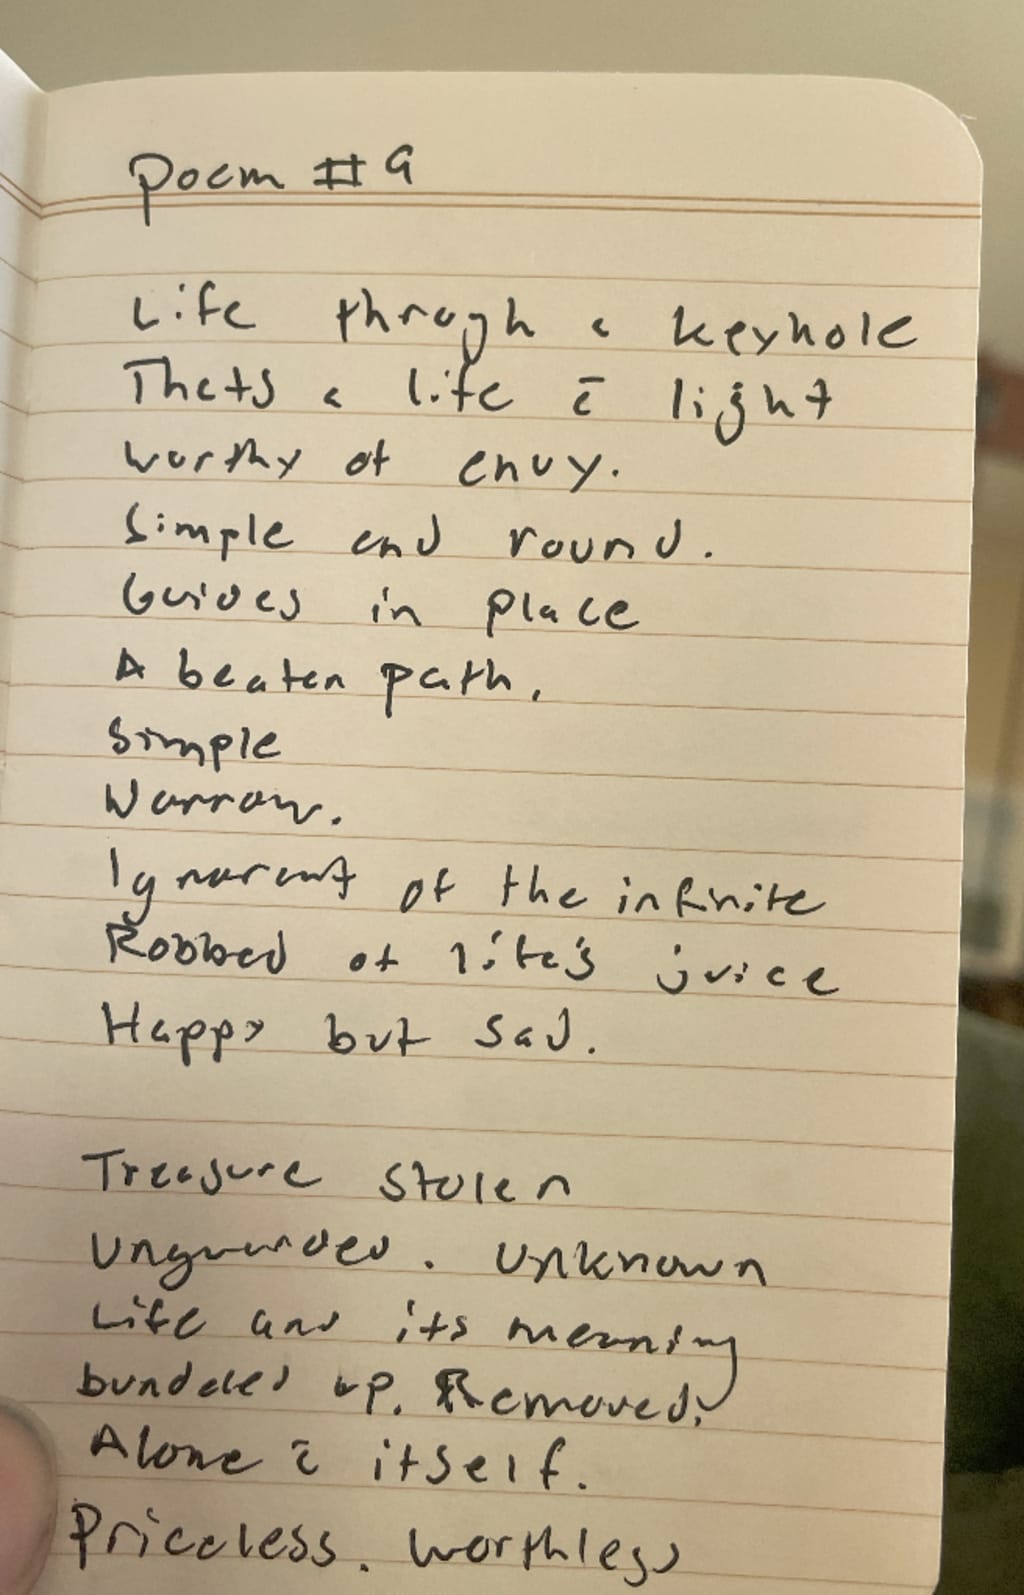 Poem #9
Life throgh a keyhole
Thats a life c̄ light
worthy of envy.
Simple and round.
Guides in place
A beaten path.
Simple
Narrow.
Ignorant of the infinite
Robbed of life's juice
Happy but sad.
Treasure stolen
Unguarded. Unknown
Life and its meaning
bundeled up. Removed.
Alone c̄ itself.
Priceless. Worthless